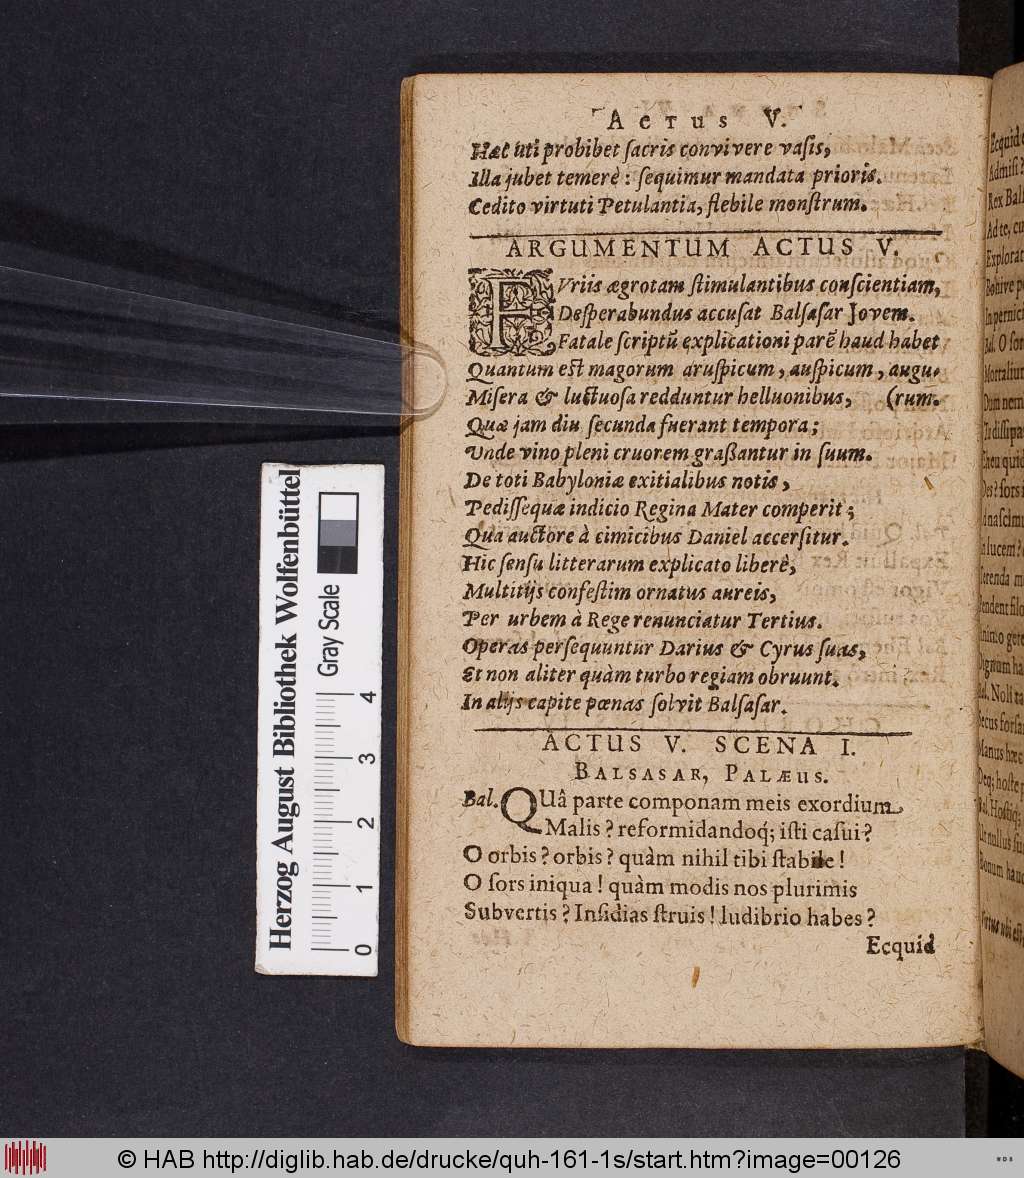 Actus V.
Hæc uti prohibet sacris convivere vasis,
Illa jubet temerè : sequimur mandata prioris.
Cedito virtuti Petulantia, flebile monstrum.
ARGUMENTUM ACTUS V.
FUriis ægrotam stimulantibus conscientiam,
Desperabundus accusat Balsasar Jovem.
Fatale scriptũ explicationi parẽ haud habet
Quantum est magorum aruspicum, auspicum, augu-
Misera & luctuosa redduntur helluonibus, (rum.
Quæ jam diu secunda fuerant tempora;
Unde vino pleni cruorem graßantur in suum.
De toti Babyloniæ exitialibus notis,
Pedissequæ indicio Regina Mater comperit;
Qua auctore à cimicibus Daniel accersitur.
Hic sensu litterarum explicato liberè,
Multitijs confestim ornatus aureis,
Per urbem à Rege renunciatur Tertius.
Operas persequuntur Darius & Cyrus suas,
Et non aliter quàm turbo regiam obruunt.
In alijs capite pœnas solvit Balsasar.
ACTUS V. SCENA I.
Balsasar, Palæus.
Bal. QUâ parte componam meis exordium
Malis ? reformidandoq́; isti casui ?
O orbis ? orbis ? quàm nihil tibi stabile !
O sors iniqua ! quàm modis nos plurimis
Subvertis ? Insidias struis ! ludibrio habes ?
Ecquid
Ecquid
Admisi
Rex Bal
Ad te, cu
Explorat
Bohive p
In pernici
Bal. O sor
Mortaliu
Dum nem
Herzog August Bibliothek Wolfenbüttel
Gray Scale
0 1 2 3 4
© HAB http://diglib.hab.de/drucke/quh-161-1s/start.htm?image=00126